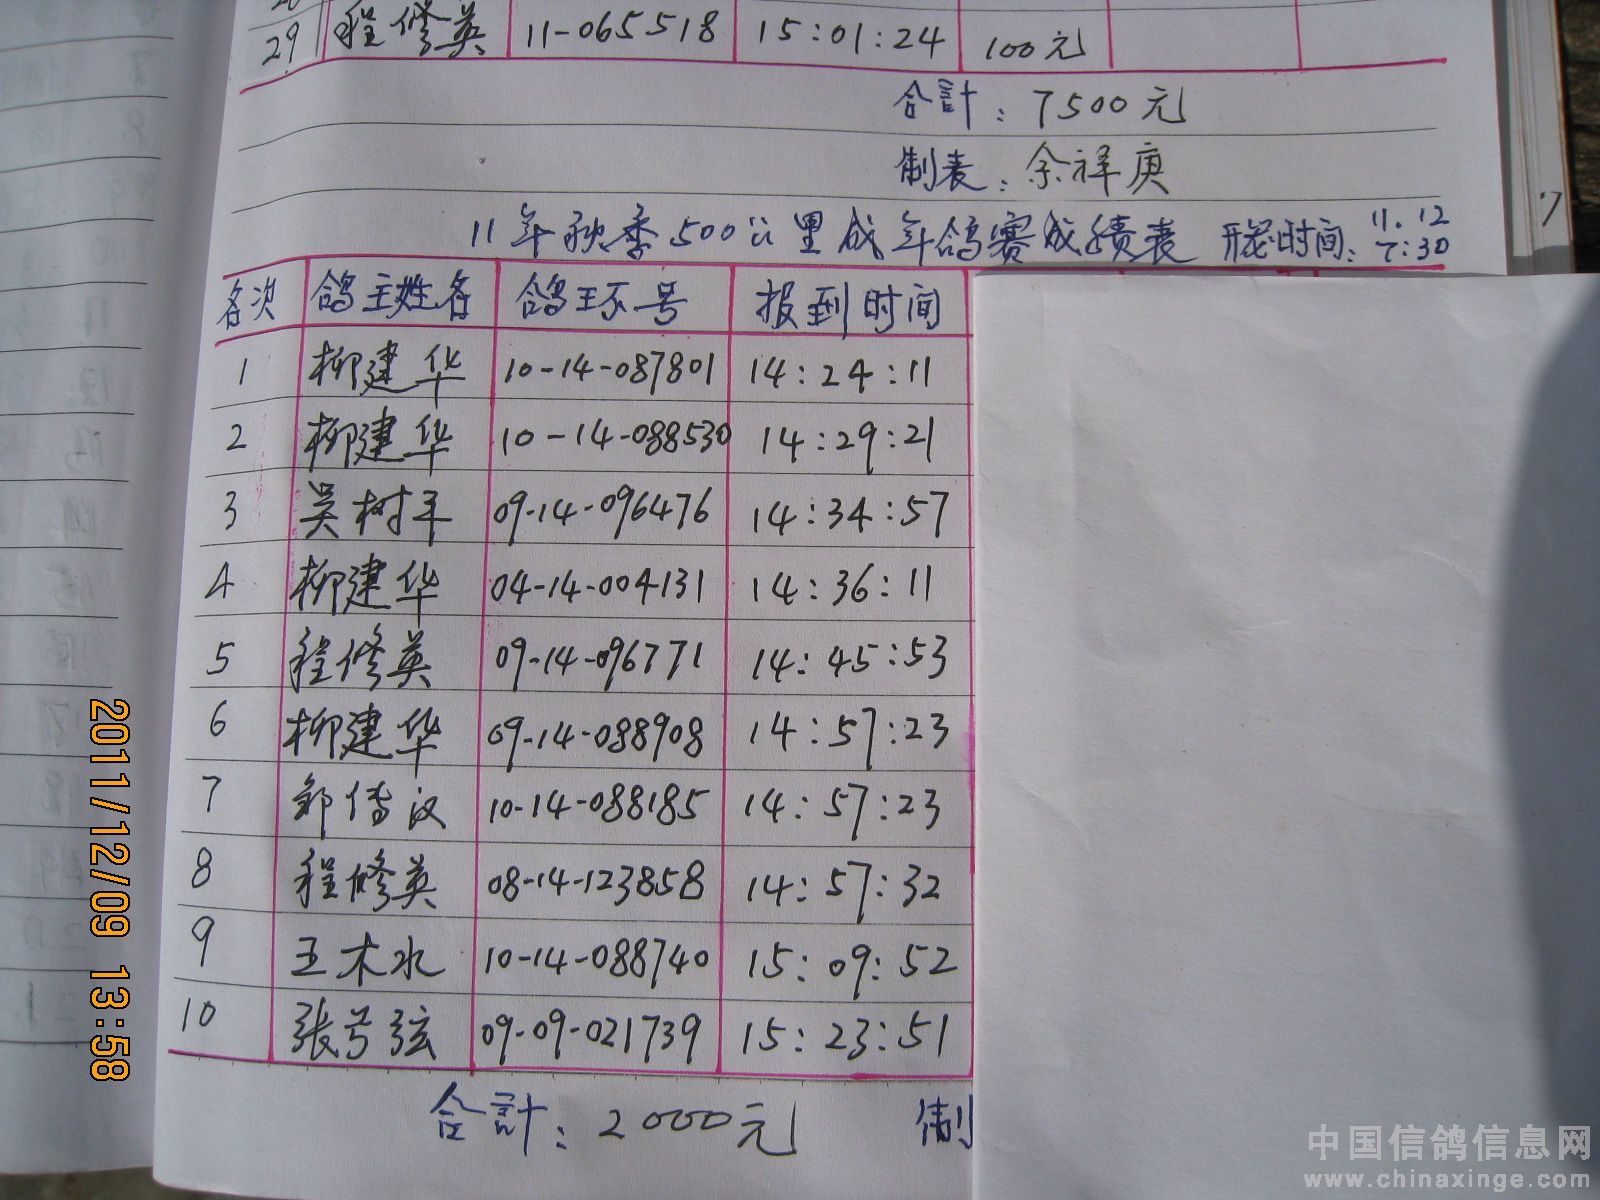 29 程修英 11-065518 15:01:24 100元
合計：7500元
制表：余祥庚
11年秋季500公里成年鸽赛成绩表 开笼时间：11.12 7:30
名次 鸽主姓名 鸽环号 报到时间
1 柳建华 10-14-087801 14:24:11
2 柳建华 10-14-088530 14:29:21
3 吴树平 09-14-096476 14:34:57
4 柳建华 04-14-004131 14:36:11
5 程修英 09-14-096771 14:45:53
6 柳建华 09-14-088908 14:57:23
7 邹传汉 10-14-088185 14:57:23
8 程修英 08-14-123858 14:57:32
9 王木水 10-14-088740 15:09:52
10 张弓弦 09-09-021739 15:23:51
合計：2000元 制
2011/12/09 13:58
中国信鸽信息网
www.chinaxinge.com